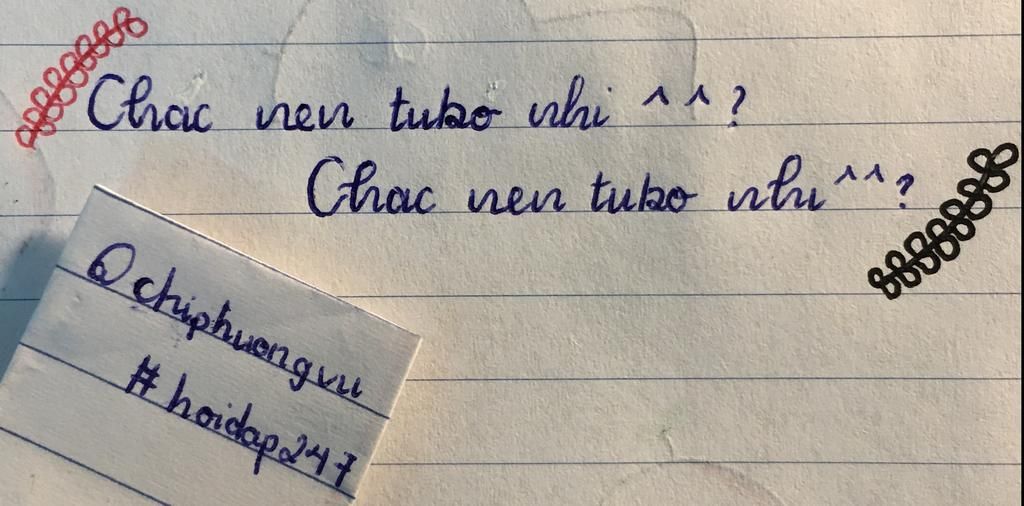 Chac nen tubo nhi ^^?
Chac nen tubo nhi ^^?
@chiphuongvu
#hoidap247